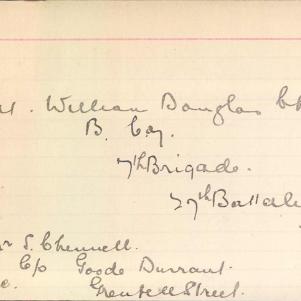 William Douglas Ch
B. Coy.
7th Brigade.
27th Battalio
r S. Chennell.
C/o Goode Durrant.
Grenfell Street.